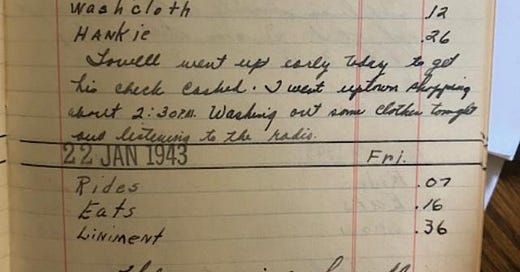 Washcloth .12
HANKie .26
Lowell went up early today to get
his check cashed. I went uptown shopping
about 2:30PM. Washing out some clothes tonight
and listening to the radio.
22 JAN 1943 Fri.
Rides .07
Eats .16
Liniment .36